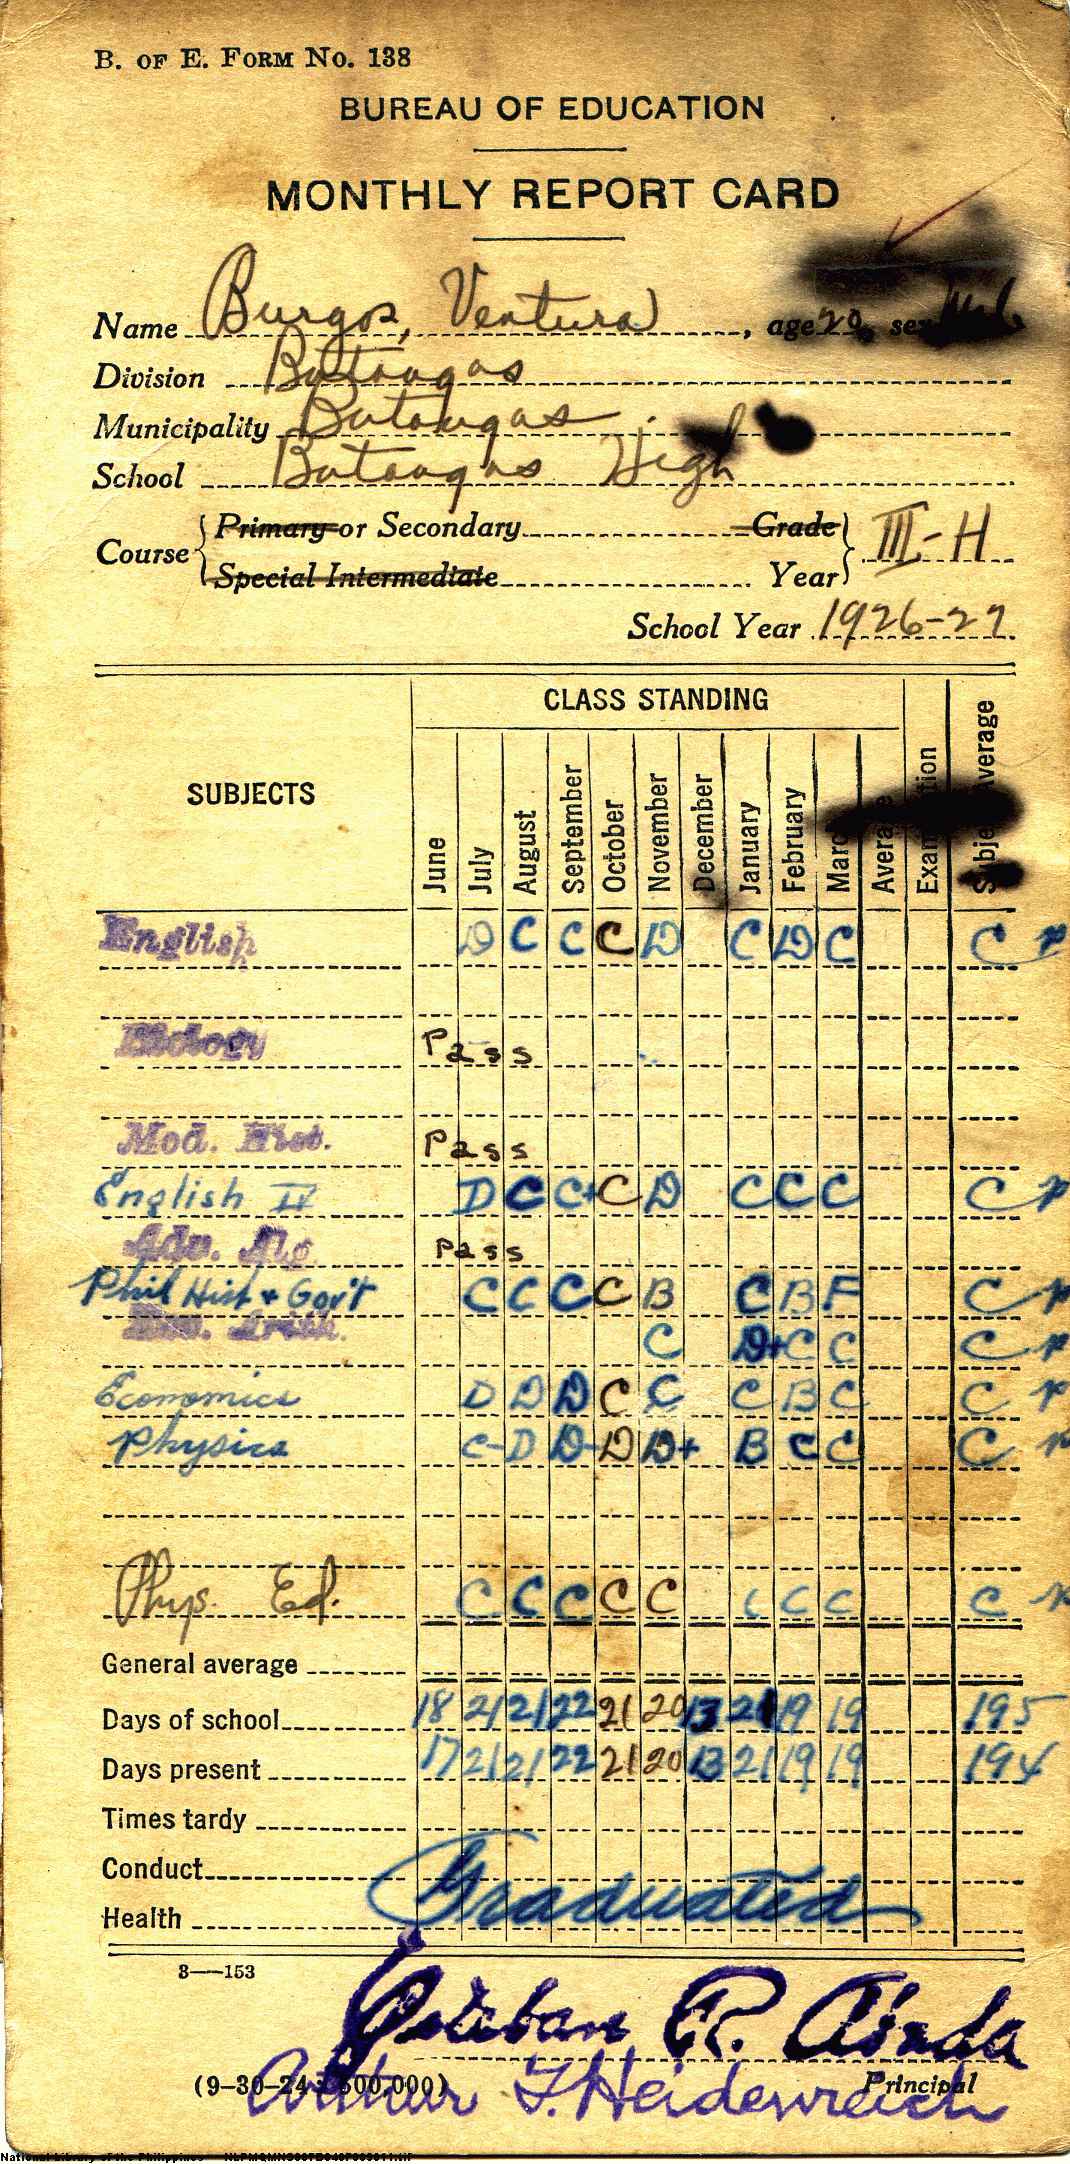 B. OF E. FORM NO. 138
BUREAU OF EDUCATION
MONTHLY REPORT CARD
Name Burgos, Ventura, age 20, sex
Division Batangas
Municipality Batangas
School Batangas High
Course Primary or Secondary Grade III-H
Special Intermediate Year
School Year 1926-27
CLASS STANDING
SUBJECTS June July August September October November December January February March Average Examination Subject Average
English D C C C D C D C C P
Biology Pass
Mod. Hist. Pass
English IV D C C+ C D C C C C P
Adv. Alg. Pass
Phil Hist & Gov't C C C C B C B F C P
Arith. C D+ C C C P
Economics D D D C C C B C C P
Physics C- D D- D D+ B C C C P
Phys. Ed. C C C C C C C C C P
General average
Days of school 18 21 21 22 21 20 13 21 19 19 195
Days present 17 21 21 22 21 20 13 21 19 19 194
Times tardy
Conduct
Health
Graduated
3—153
Esteban R. Abada
(9-30-24 500,000) Principal
Arthur F. Heidenreich
National Library of the Philippines